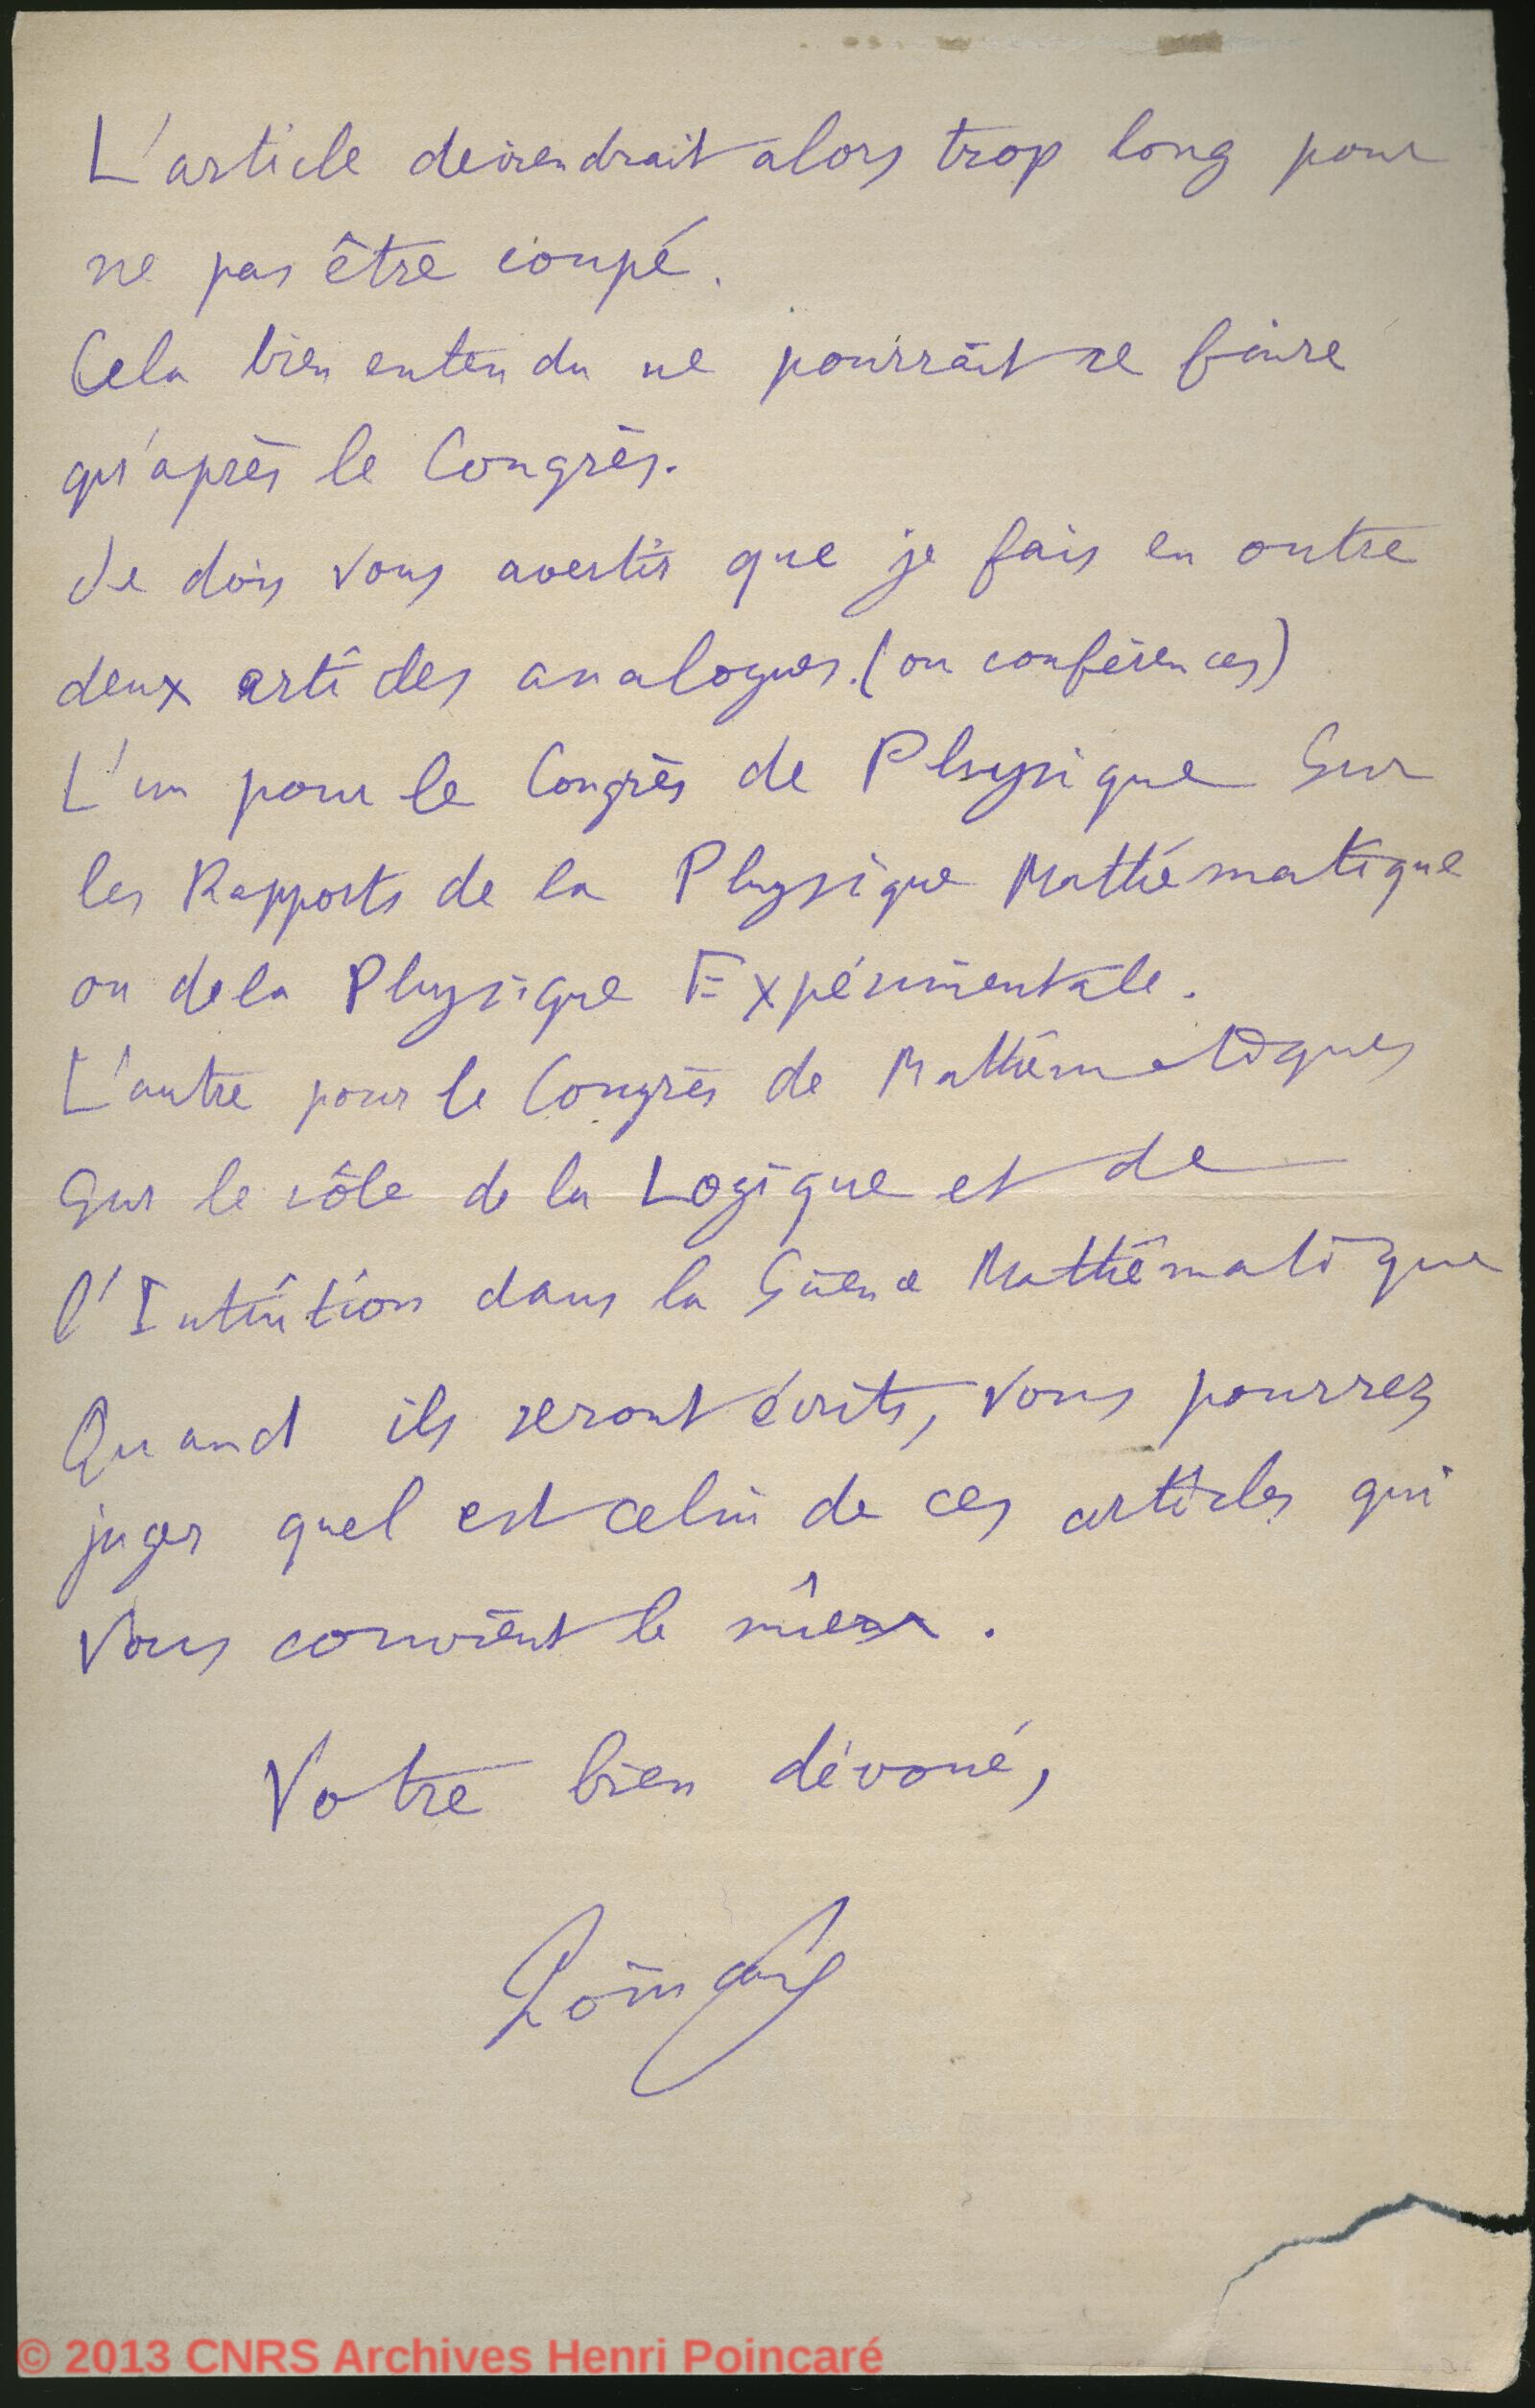 L'article deviendrait alors trop long pour
ne pas être coupé.
Cela bien entendu ne pourrait se faire
qu'après le Congrès.
Je dois vous avertir que je fais en outre
deux articles analogues. (ou conférences)
L'un pour le Congrès de Physique Sur
les Rapports de la Physique Mathématique
ou de la Physique Expérimentale.
L'autre pour le Congrès de Mathématiques
Sur le rôle de la Logique et de
l'Intuition dans la Science Mathématique
Quand ils seront écrits, vous pourrez
juger quel est celui de ces articles qui
vous convient le mieux.
Votre bien dévoué,
Poincaré
© 2013 CNRS Archives Henri Poincaré